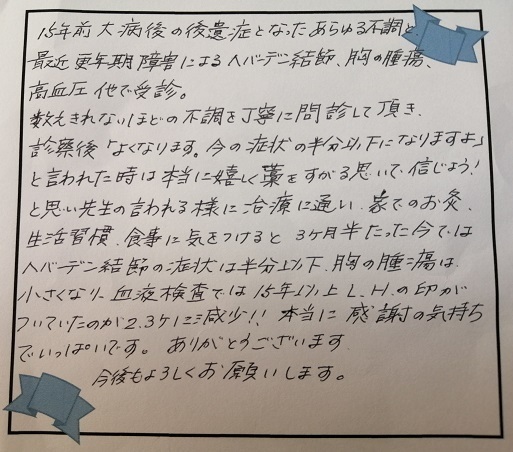 15年前大病後の後遺症となったあらゆる不調と、
最近更年期障害によるヘバーデン結節、胸の腫瘍、
高血圧他で受診。
数えきれないほどの不調を丁寧に問診して頂き、
診察後「よくなります。今の症状の半分以下になりますよ」
と言われた時は本当に嬉しく藁をすがる思いで、信じよう！
と思い先生の言われる様に治療に通い、家でのお灸、
生活習慣、食事に気をつけると3ヶ月半たった今では
ヘバーデン結節の症状は半分以下、胸の腫瘍は
小さくなり、血液検査では15年以上L、Hの印が
ついていたのが2.3ケに減少!! 本当に感謝の気持ち
でいっぱいです。ありがとうございます
今後もよろしくお願いします。